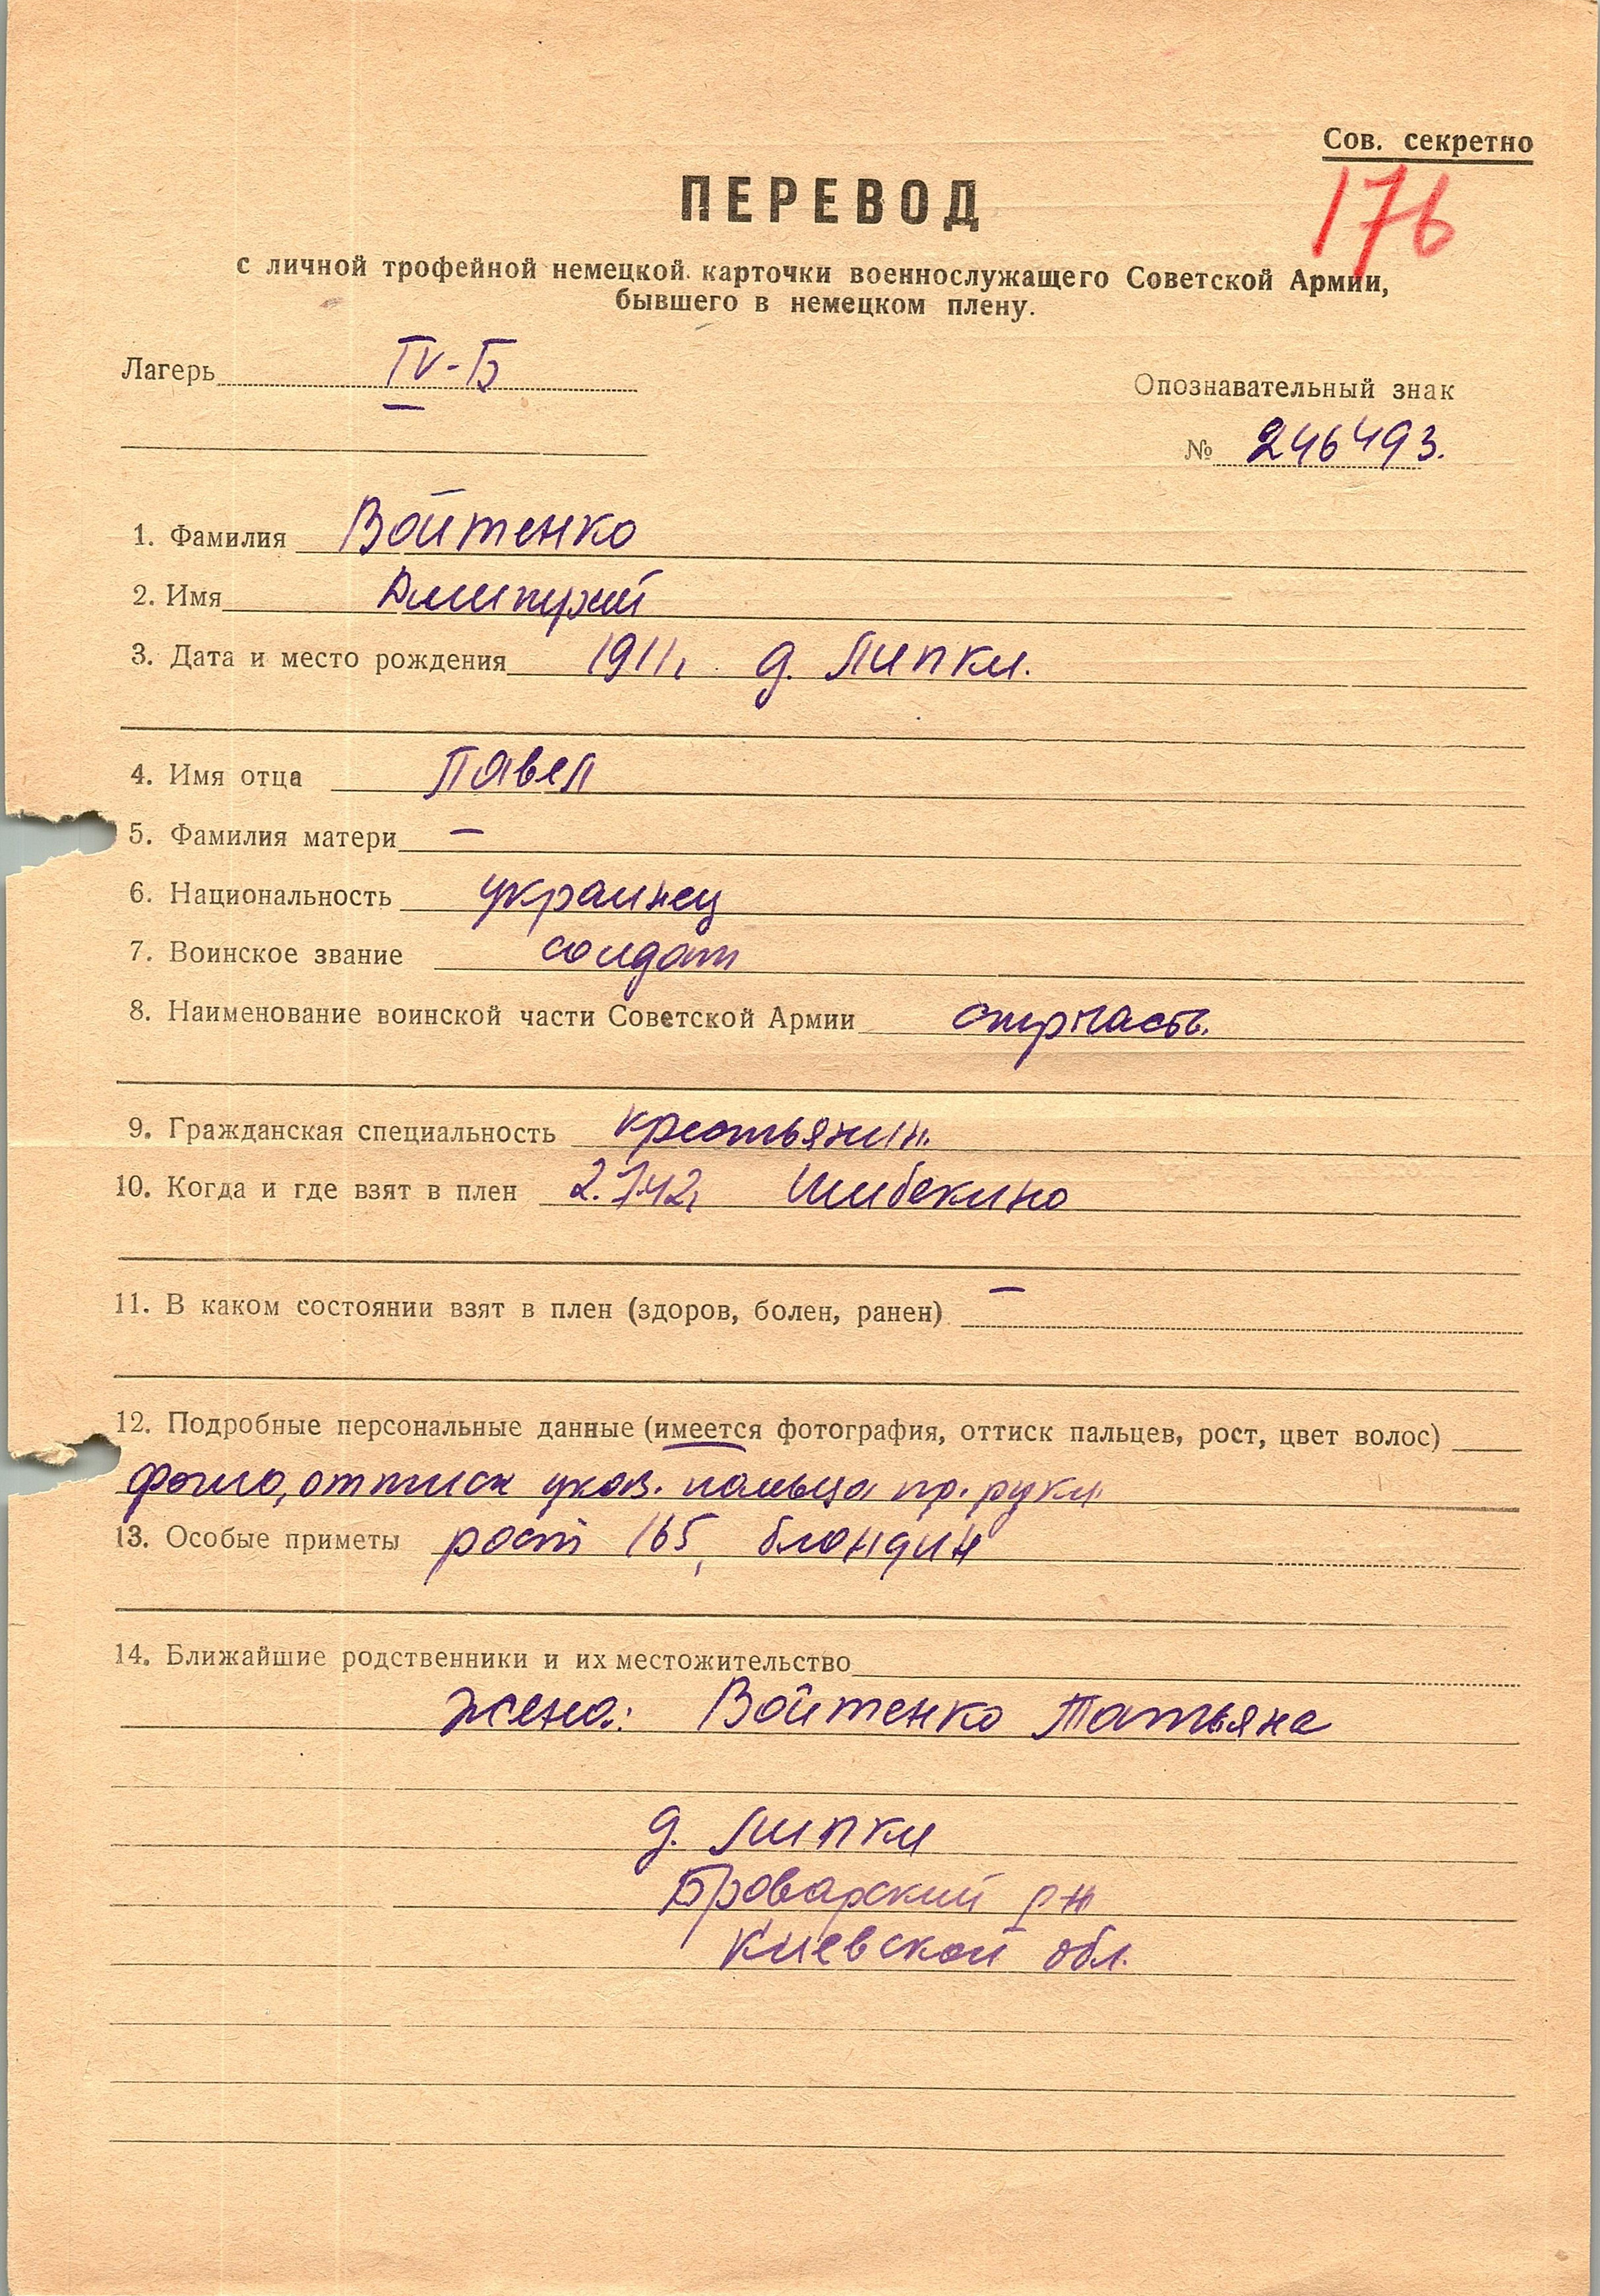 Сов. секретно
176
ПЕРЕВОД
с личной трофейной немецкой карточки военнослужащего Советской Армии,
бывшего в немецком плену.
Лагерь IV-Б
Опознавательный знак
№ 246493.
1. Фамилия Войтенко
2. Имя Дмитрий
3. Дата и место рождения 1911, д. Липки.
4. Имя отца Павел
5. Фамилия матери —
6. Национальность украинец
7. Воинское звание солдат
8. Наименование воинской части Советской Армии стрчасть.
9. Гражданская специальность крестьянин.
10. Когда и где взят в плен 2.7.42, Шибекино
11. В каком состоянии взят в плен (здоров, болен, ранен) —
12. Подробные персональные данные (имеется фотография, оттиск пальцев, рост, цвет волос)
фото, оттиск указ. пальца пр. руки
13. Особые приметы рост 165, блондин
14. Ближайшие родственники и их местожительство
жена: Войтенко Татьяна
д. Липки
Броварский р-н
Киевской обл.